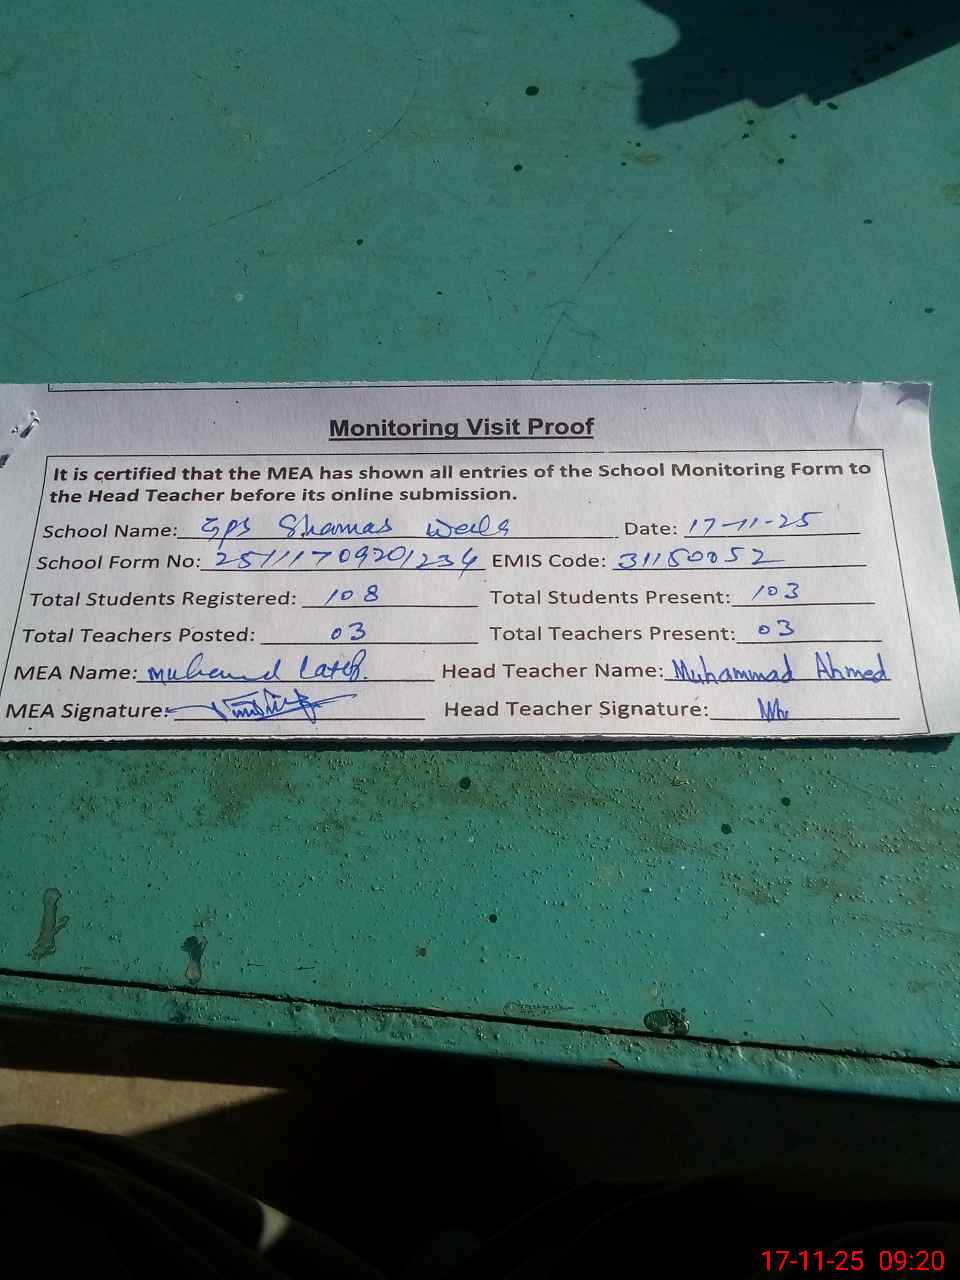 Monitoring Visit Proof
It is certified that the MEA has shown all entries of the School Monitoring Form to
the Head Teacher before its online submission.
School Name: GPS Shamas Date: 17-11-25
School Form No: 25111709201234 EMIS Code: 31150052
Total Students Registered: 108 Total Students Present: 103
Total Teachers Posted: 03 Total Teachers Present: 03
MEA Name: Head Teacher Name: Muhammad Ahmed
MEA Signature: Head Teacher Signature:
17-11-25 09:20